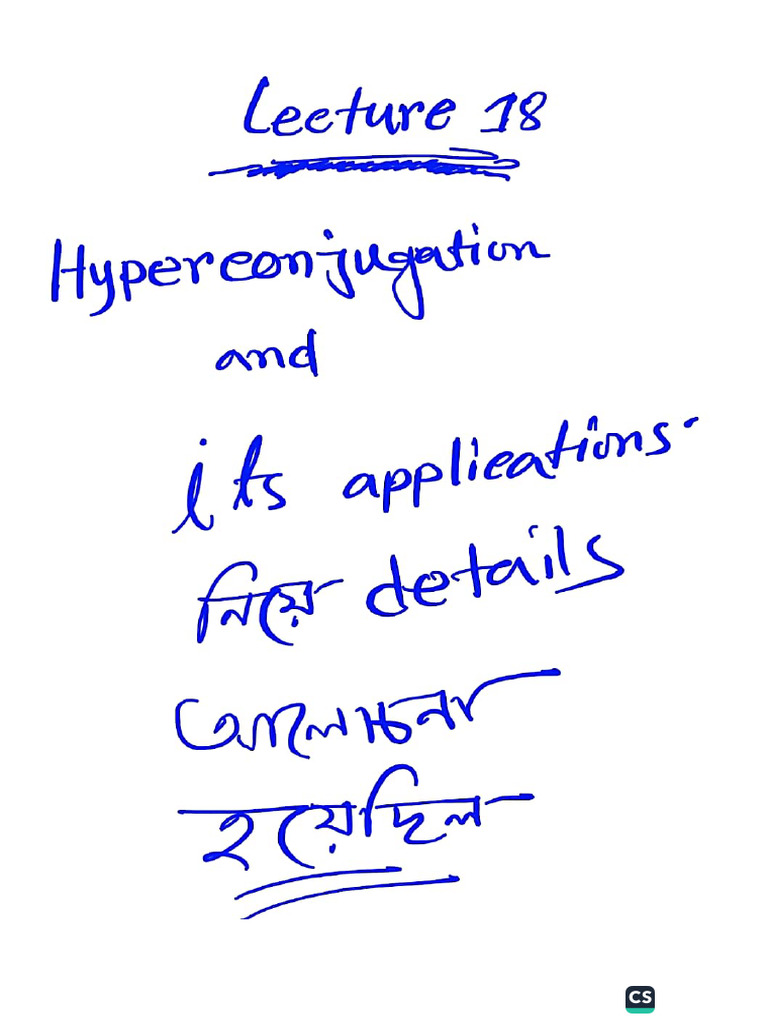 Lecture 18
Hyperconjugation
and
its applications.
নিয়ে details
আলোচনা
হয়েছিল
CS